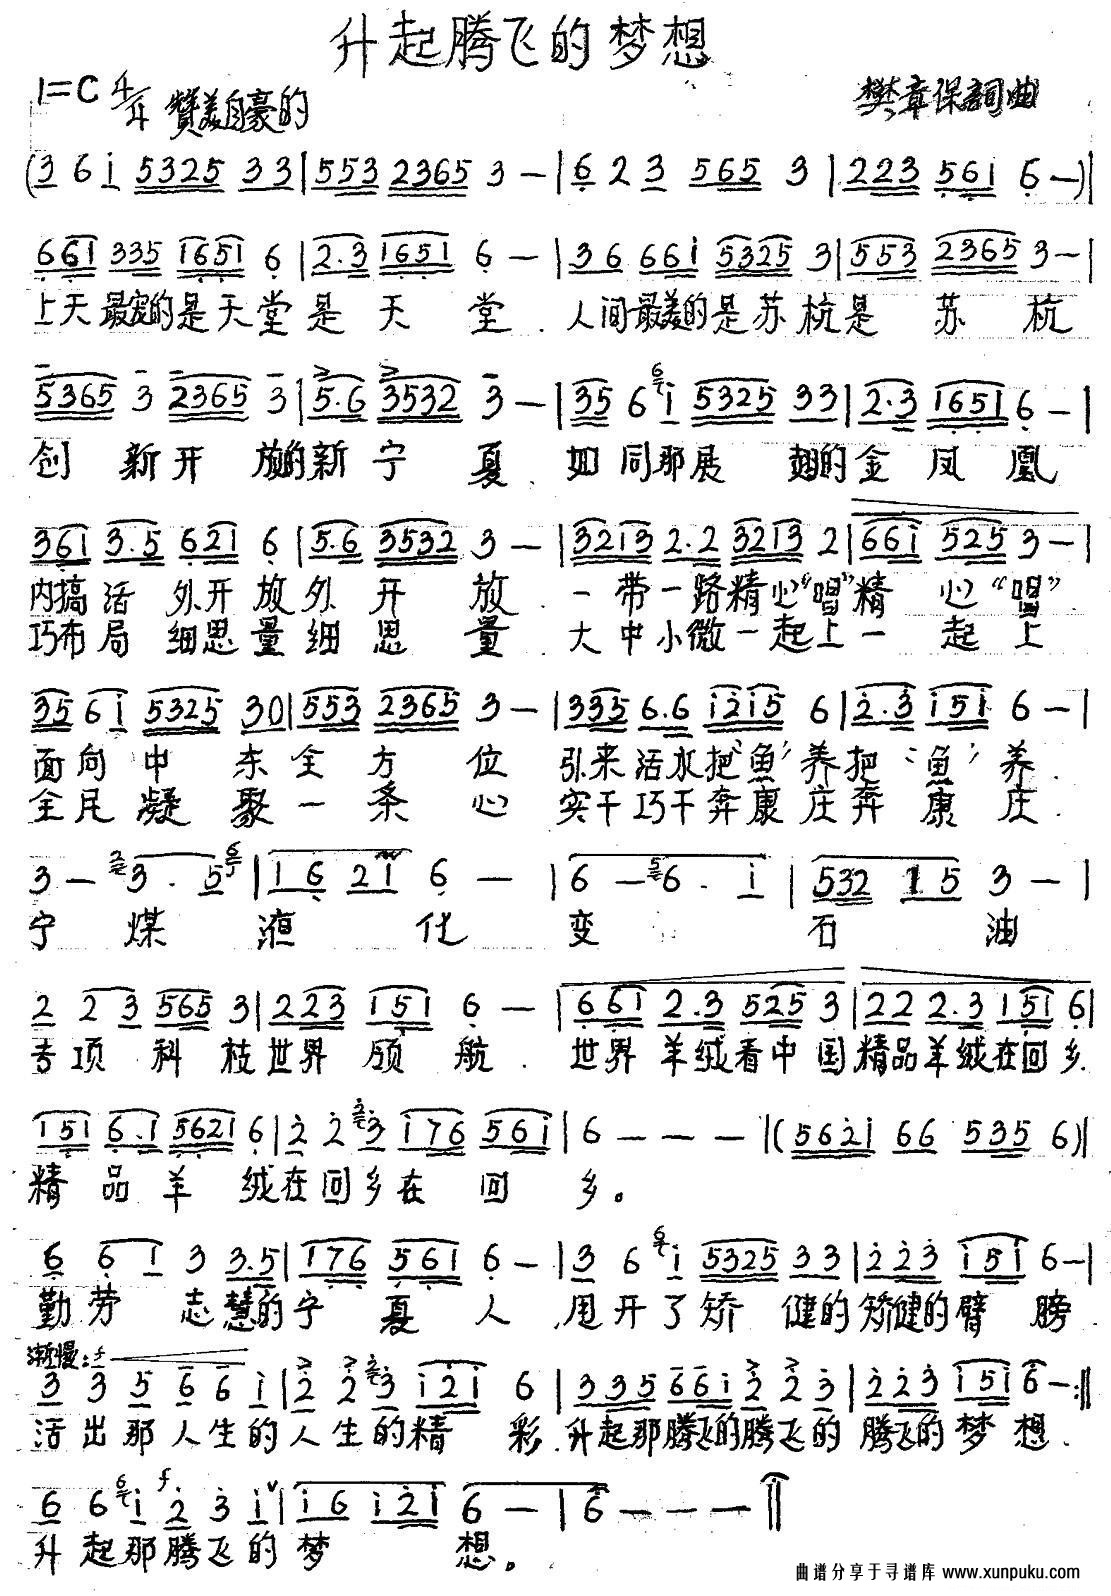 升起腾飞的梦想
1=C 4/4 赞美自豪的
樊章保詞曲
(3 6 i 5325 33|553 2365 3 —|6 2 3 565 3|223 561 6 —)|
661 335 1651 6|2·3 1651 6 —|36 661 5325 3|553 2365 3 —|
上天最宠的是天堂是天堂.人间最美的是苏杭是苏杭
5365 3 2365 3|5·6 3532 3 —|35 6 i 5325 33|2·3 1651 6 —|
创新开放的新宁夏.如同那展翅的金凤凰
361 3·5 621 6|5·6 3532 3 —|3213 2·2 3213 2|661 525 3 —|
内搞活外开放外开放.一带一路精心“唱”精心“唱”.
巧布局细思量细思量大中小微一起上一起上
35 6i 5325 30|553 2365 3 —|335 6·6 i2i5 6|2·3 i5i 6 —|
面向中东全方位引来活水把“鱼”养把“鱼”养.
全民凝聚一条心实干巧干奔康庄奔康庄.
3 — 3·5|16 21 6 —|6 — 6·i|532 15 3 —|
宁煤液化变石油
2 23 565 3|223 151 6 —|661 2·3 525 3|22 2·3 151 6|
专项科技世界领航.世界羊绒看中国精品羊绒在回乡.
151 6·1 5621 6|2 2 3 i76 56i|6 — — —|(562i 66 535 6)|
精品羊绒在回乡在回乡。
6 61 3 3·5|176 561 6 —|3 6 i 5325 33|223 i5i 6 —|
勤劳志慧的宁夏人.甩开了矫健的矫健的臂膀
渐慢:f
3 3 5 6 6 i|2 2 3 i2i 6|335 66i 2 2 3|223 i5i 6 —:||
活出那人生的人生的精彩.升起那腾飞的腾飞的腾飞的梦想.
6 6 i 2 3 i|i6 i2i 6 —|6 — — —||
升起那腾飞的梦想。
曲谱分享于寻谱库 www.xunpuku.com